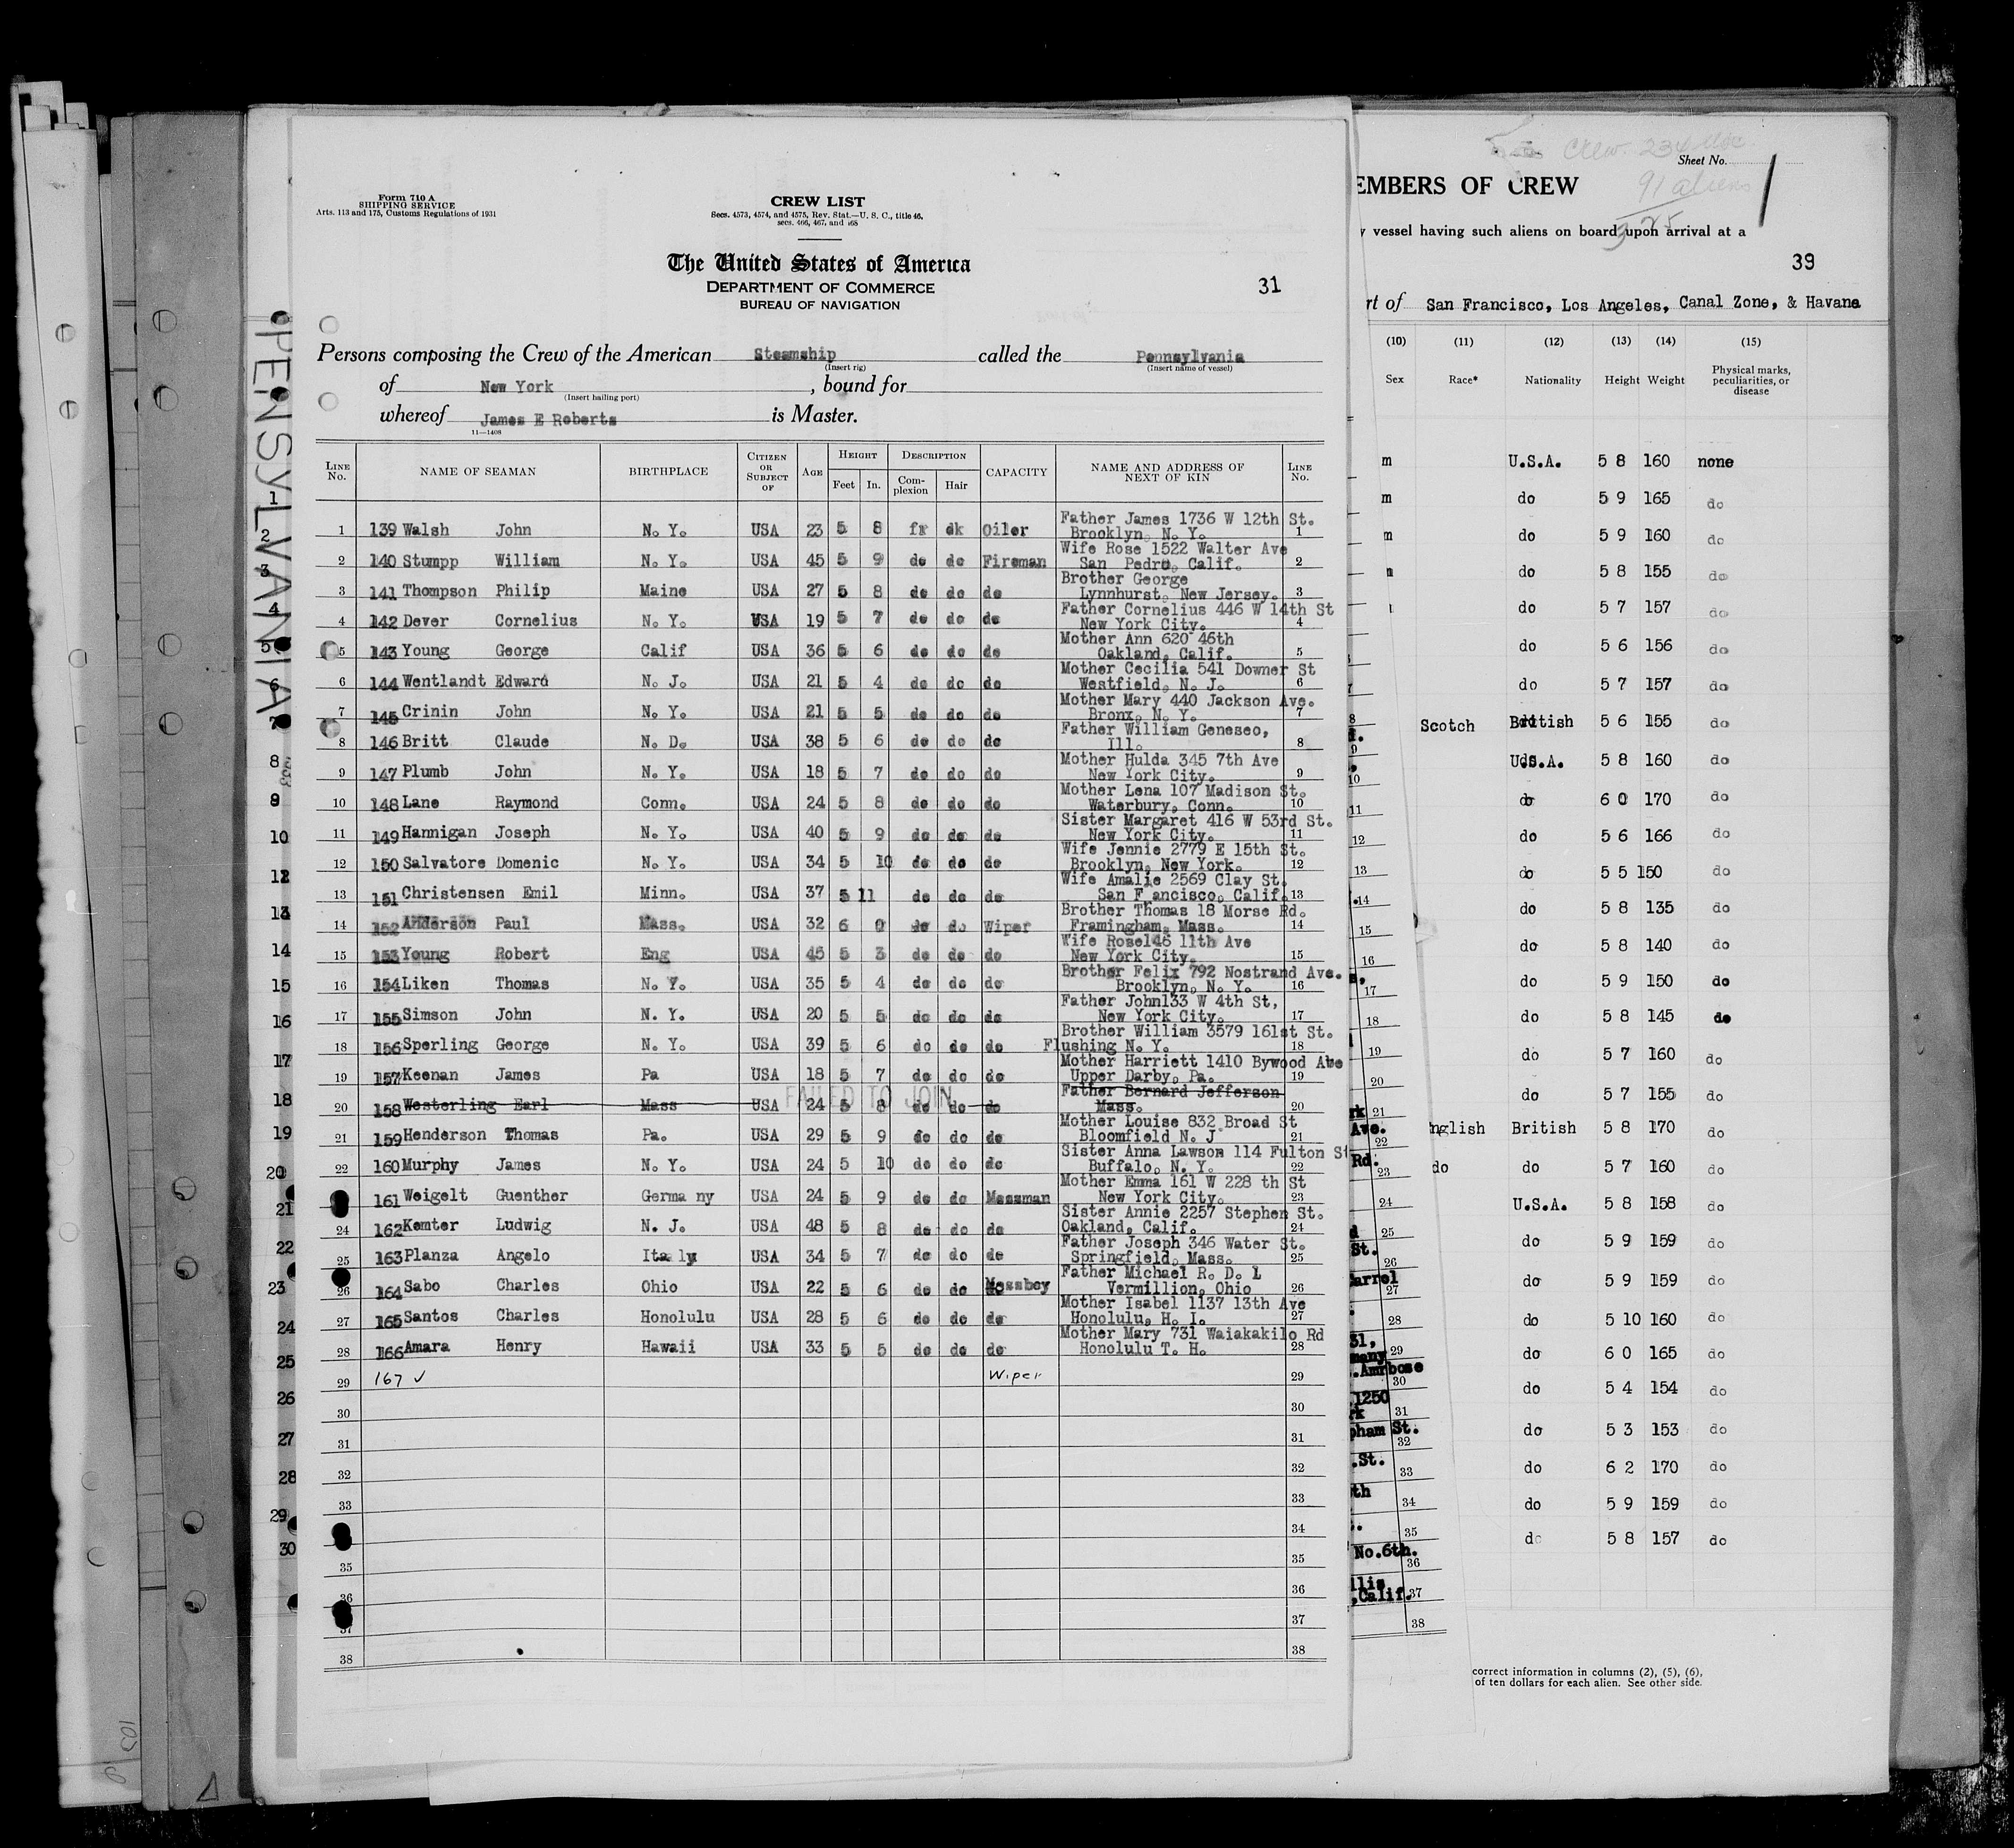 Form 710 A
SHIPPING SERVICE
Arts. 113 and 175, Customs Regulations of 1931
CREW LIST
Secs. 4573, 4574, and 4575, Rev. Stat.—U. S. C., title 46,
secs. 466, 467, and 468
The United States of America
DEPARTMENT OF COMMERCE
BUREAU OF NAVIGATION
31
Persons composing the Crew of the American Steamship called the Pennsylvania
(Insert rig) (Insert name of vessel)
of New York , bound for
(Insert hailing port)
whereof James E Roberts is Master.
11—1408
LINE No. NAME OF SEAMAN BIRTHPLACE CITIZEN OR SUBJECT OF AGE HEIGHT Feet In. DESCRIPTION Complexion Hair CAPACITY NAME AND ADDRESS OF NEXT OF KIN LINE No.
1 139 Walsh John N. Y. USA 23 5 8 fr dk Oiler Father James 1736 W 12th St. Brooklyn, N. Y. 1
2 140 Stumpp William N. Y. USA 45 5 9 do do Fireman Wife Rose 1522 Walter Ave San Pedro, Calif. 2
3 141 Thompson Philip Maine USA 27 5 8 do do do Brother George Lynnhurst, New Jersey. 3
4 142 Dever Cornelius N. Y. USA 19 5 7 do do do Father Cornelius 446 W 14th St New York City. 4
5 143 Young George Calif USA 36 5 6 do do do Mother Ann 620 46th Oakland, Calif. 5
6 144 Wentlandt Edward N. J. USA 21 5 4 do do do Mother Cecilia 541 Downer St Westfield, N. J. 6
7 145 Crinin John N. Y. USA 21 5 5 do do do Mother Mary 440 Jackson Ave. Bronx, N. Y. 7
8 146 Britt Claude N. D. USA 38 5 6 do do do Father William Geneseo, Ill. 8
9 147 Plumb John N. Y. USA 18 5 7 do do do Mother Hulda 345 7th Ave New York City. 9
10 148 Lane Raymond Conn. USA 24 5 8 do do do Mother Lena 107 Madison St. Waterbury, Conn. 10
11 149 Hannigan Joseph N. Y. USA 40 5 9 do do do Sister Margaret 416 W 53rd St. New York City. 11
12 150 Salvatore Domenic N. Y. USA 34 5 10 do do do Wife Jennie 2779 E 15th St. Brooklyn, New York. 12
13 151 Christensen Emil Minn. USA 37 5 11 do do do Wife Amalie 2569 Clay St. San F ancisco, Calif. 13
14 152 Anderson Paul Mass. USA 32 6 0 do do Wiper Brother Thomas 18 Morse Rd. Framingham, Mass. 14
15 153 Young Robert Eng USA 45 5 3 do do do Wife Rose146 11th Ave New York City. 15
16 154 Liken Thomas N. Y. USA 35 5 4 do do do Brother Felix 792 Nostrand Ave. Brooklyn, N. Y. 16
17 155 Simson John N. Y. USA 20 5 5 do do do Father John133 W 4th St, New York City. 17
18 156 Sperling George N. Y. USA 39 5 6 do do do Brother William 3579 161st St. Flushing N. Y. 18
19 157 Keenan James Pa USA 18 5 7 do do do Mother Harriett 1410 Bywood Ave Upper Darby, Pa. 19
FAILED TO JOIN
20 158 Westerling Earl Mass USA 24 5 8 do do do Father Bernard Jefferson Mass. 20
21 159 Henderson Thomas Pa. USA 29 5 9 do do do Mother Louise 832 Broad St Bloomfield N. J 21
22 160 Murphy James N. Y. USA 24 5 10 do do do Sister Anna Lawson 114 Fulton St Buffalo, N. Y. 22
161 Weigelt Guenther Germa ny USA 24 5 9 do do Messman Mother Emma 161 W 228 th St New York City. 23
24 162 Kemter Ludwig N. J. USA 48 5 8 do do do Sister Annie 2257 Stephen St. Oakland, Calif. 24
25 163 Planza Angelo Ita ly USA 34 5 7 do do do Father Joseph 346 Water St. Springfield, Mass. 25
26 164 Sabo Charles Ohio USA 22 5 6 do do Messboy Father Michael R. D. 1 Vermillion, Ohio 26
27 165 Santos Charles Honolulu USA 28 5 6 do do do Mother Isabel 1137 13th Ave Honolulu, H. I. 27
28 166 Amara Henry Hawaii USA 33 5 5 do do do Mother Mary 731 Waiakakilo Rd Honolulu T. H. 28
29 167 ✓ Wiper 29
30 30
31 31
32 32
33 33
34
35 35
36 36
37 37
38 38
PENSYLVANIA
1
2
3
4
5
6
7
8
9
10
11
12
13
14
15
16
17
18
19
20
21
22
23
24
25
26
27
28
29
30
Crew. 234
91 aliens
Sheet No.
EMBERS OF CREW
vessel having such aliens on board upon arrival at a
39
rt of San Francisco, Los Angeles, Canal Zone, & Havana
(10) (11) (12) (13) (14) (15)
Sex Race* Nationality Height Weight Physical marks, peculiarities, or disease
m U.S.A. 5 8 160 none
m do 5 9 165 do
m do 5 9 160 do
do 5 8 155 do
do 5 7 157 do
do 5 6 156 do
do 5 7 157 do
Scotch British 5 6 155 do
U.S.A. 5 8 160 do
do 6 0 170 do
do 5 6 166 do
do 5 5 150 do
do 5 8 135 do
do 5 8 140 do
do 5 9 150 do
do 5 8 145 do
do 5 7 160 do
do 5 7 155 do
nglish British 5 8 170 do
do do 5 7 160 do
U.S.A. 5 8 158 do
do 5 9 159 do
do 5 9 159 do
do 5 10 160 do
do 6 0 165 do
do 5 4 154 do
do 5 3 153 do
do 6 2 170 do
do 5 9 159 do
do 5 8 157 do
correct information in columns (2), (5), (6),
of ten dollars for each alien. See other side.